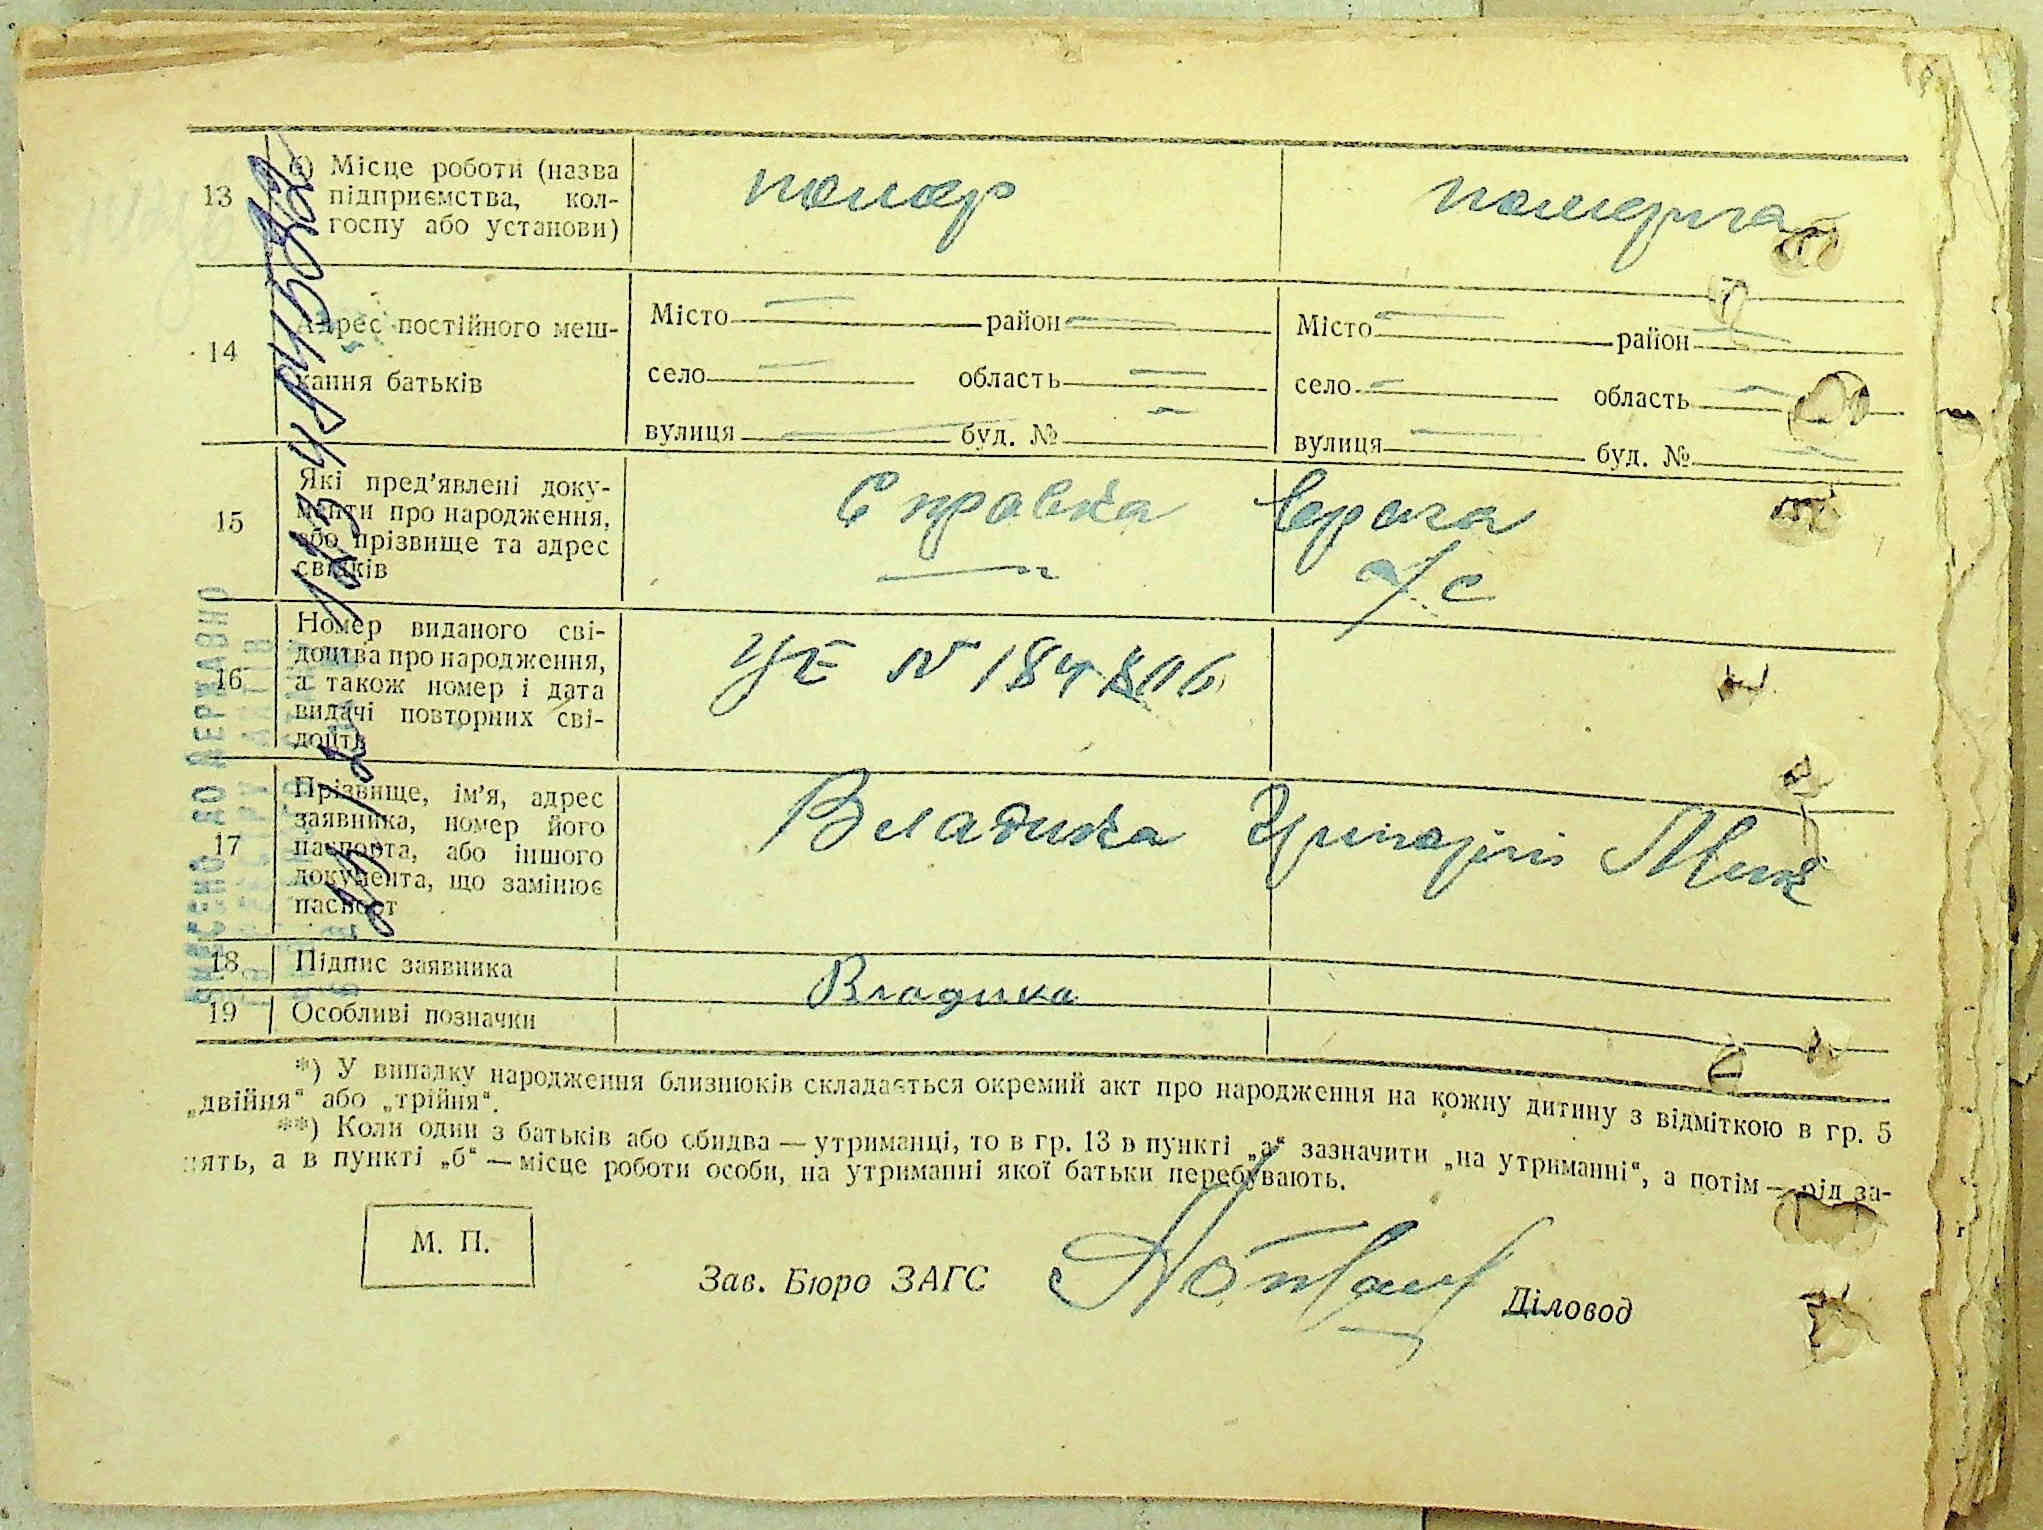 13 б) Місце роботи (назва
підприємства, кол-
госпу або установи)
14 Адрес постійного меш-
кання батьків
Місто район
село область
вулиця буд. №
Місто район
село область
вулиця буд. №
15 Які пред’явлені доку-
менти про народження,
або прізвище та адрес
свідків
Справка врача
16 Номер виданого сві-
доцтва про народження,
а також номер і дата
видачі повторних сві-
доцтв
УЕ № 184806
17 Прізвище, ім’я, адрес
заявника, номер його
паспорта, або іншого
документа, що замінює
паспорт
Владика Григорій
18 Підпис заявника
Владика
19 Особливі позначки
*) У випадку народження близнюків складається окремий акт про народження на кожну дитину з відміткою в гр. 5
„двійня“ або „трійня“.
**) Коли один з батьків або обидва — утриманці, то в гр. 13 в пункті „а“ зазначити „на утриманні“, а потім — рід за-
нять, а в пункті „б“ — місце роботи особи, на утриманні якої батьки перебувають.
М. П.
Зав. Бюро ЗАГС
Діловод
ВНЕСЕНО ДО ДЕРЖАВНО